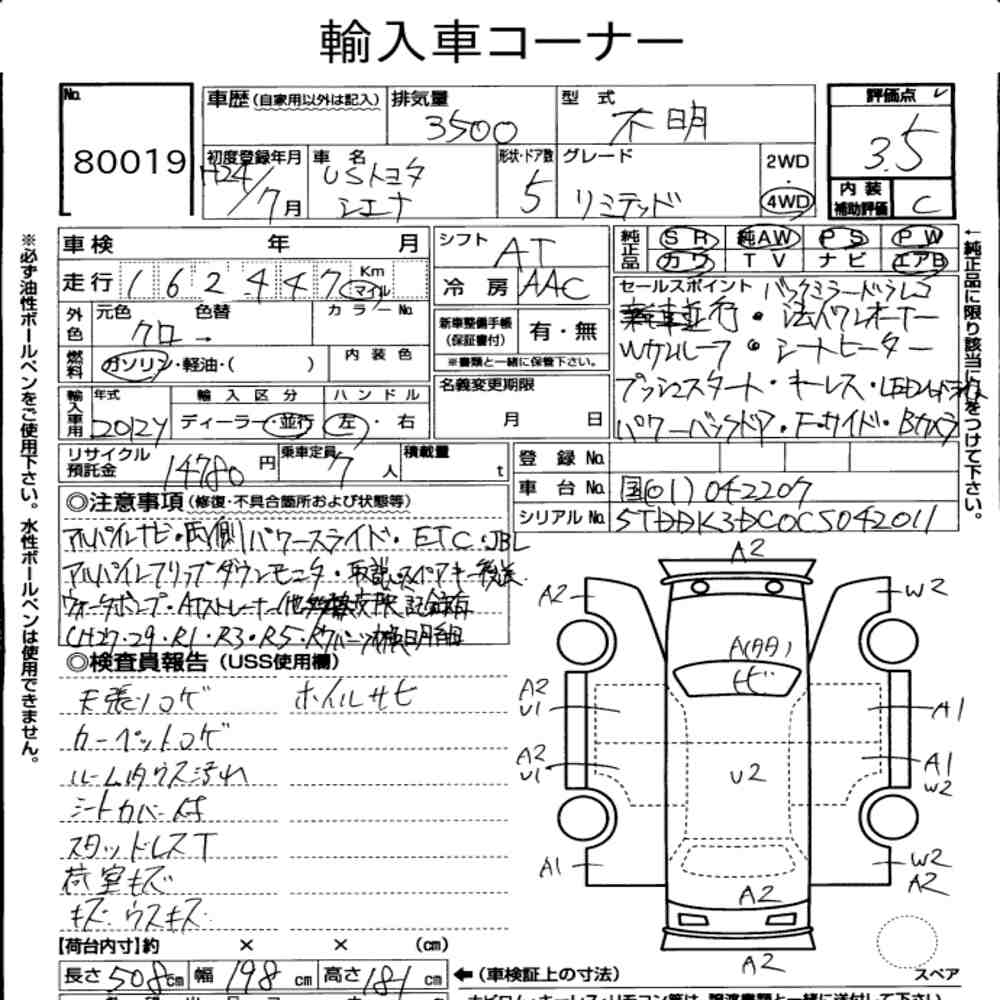 輸入車コーナー
No. 80019
車歴(自家用以外は記入) 排気量 3500 型式 不明 評価点 3.5
初度登録年月 H24/7月 車名 USトヨタ シエナ 形状・ドア数 5 グレード リミテッド 2WD・4WD 内装補助評価 C
※必ず油性ボールペンをご使用下さい。水性ボールペンは使用できません。
←純正品に限り該当に○をつけて下さい。
車検 年 月 シフト AT 純正品 SR 純AW PS PW
走行 162447 Km マイル 冷房 AAC カワ TV ナビ エアB
外色 元色 クロ 色替 カラーNo. 新車整備手帳(保証書付) 有・無 ※書類と一緒に保管下さい。
燃料 ガソリン・軽油・( ) 内装色 名義変更期限 月 日
輸入車用 年式 2012Y 輸入区分 ディーラー・並行 ハンドル 左・右
セールスポイント バックミラードラレコ
新車並行・法人ワンオーナー
Wサンルーフ・シートヒーター
プッシュスタート・キーレス・LEDヘッドライト
パワーバックドア・F・サイド・Bカメラ
リサイクル預託金 14780円 乗車定員 7人 積載量 t 登録No.
車台No. 国(01)042207
シリアルNo. 5TDDK3DC0CS042011
◎注意事項(修復・不具合箇所および状態等)
アルパインナビ・両側パワースライド・ETC・JBL
アルパインフリップダウンモニタ・取説・スペアキー後送
ウォーターポンプ・ATストレーナー他多数交換記録有
(H27・29・R1・R3・R5・
◎検査員報告(USS使用欄)
天張りコゲ ホイルサビ
カーペットコゲ
ルーム内ウス汚れ
シートカバー付
スタッドレスT
荷室キズ
キズ・ウスキズ
A2
A2 W2
A(タタ)
ヒビ
A2 U1 A1
A2 U1 U2 A1 W2
A1 W2 A2
A2
A2
スペア
【荷台内寸】約 × × (cm)
長さ 508cm 幅 198cm 高さ 181cm ←(車検証上の寸法)